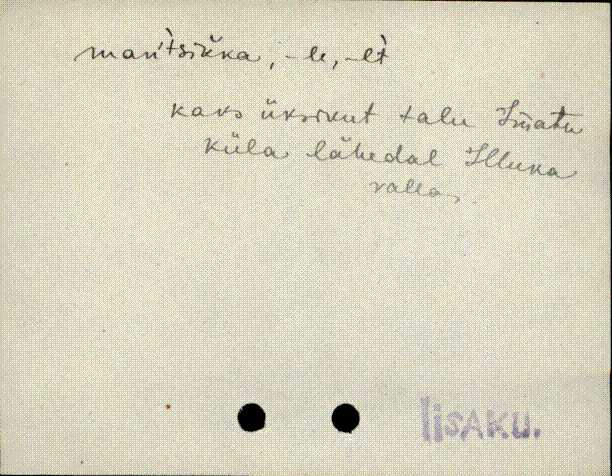 man'tsikka, -le, -lt
kaks üksikut talu Imatu
küla lähedal Illuka
vallas.
Iisaku.